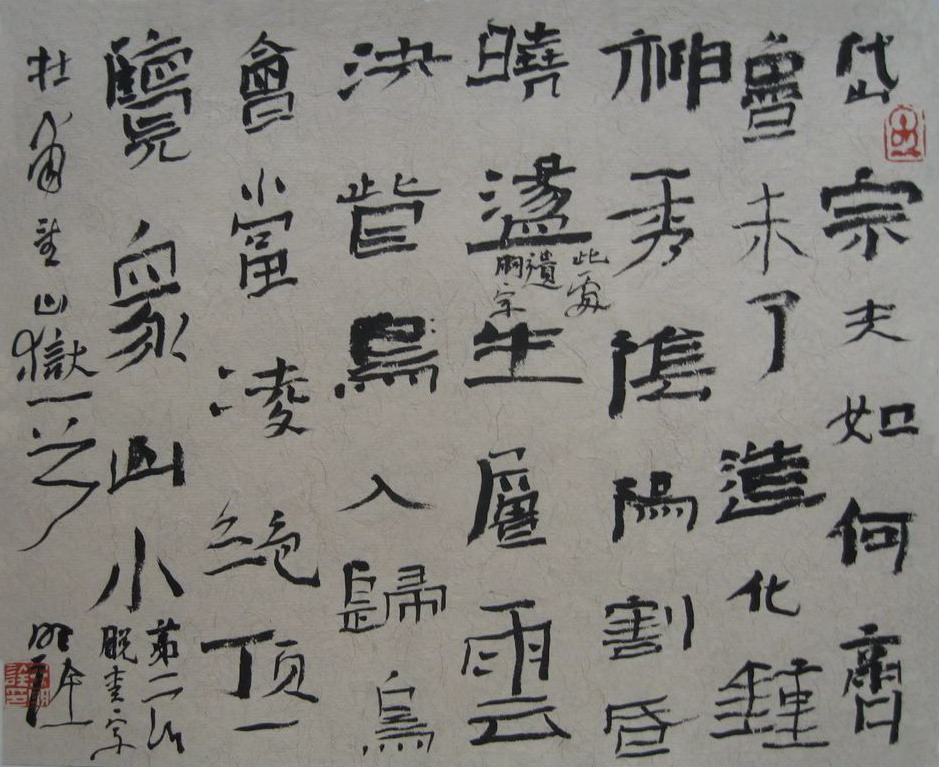 岱宗夫如何齊
魯未了造化鍾
神秀陰陽割昏
曉盪生層雲
此處
遺
胸字
決眥鳥入歸鳥
會當凌絕頂一
覽眾山小
第二行
脫書字
杜甫望山嶽一之